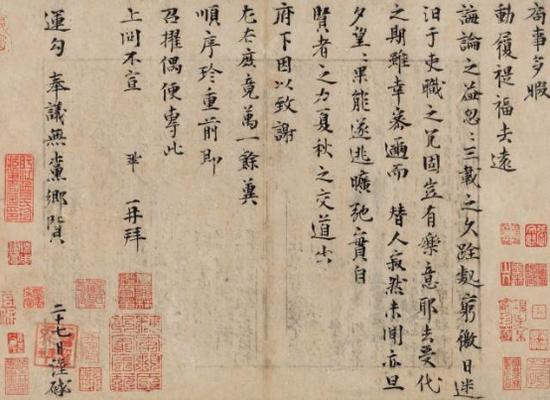 局事多暇
動履禔福去遠
誨論之益忽〻三載之久跧處窮徼日迷
汩于吏職之冗固豈有樂意耶去受代
之期雖幸密邇而替人寂然未聞亦旦
夕望〻果能遂逃曠弛實自
賢者之力夏秋之交道出
府下因以致謝
左右庶竟萬一餘冀
順序珍重前即
召擢偶便專此
上問不宣 鞏 再拜
運勾 奉議無黨鄉賢
二十七日謹啟